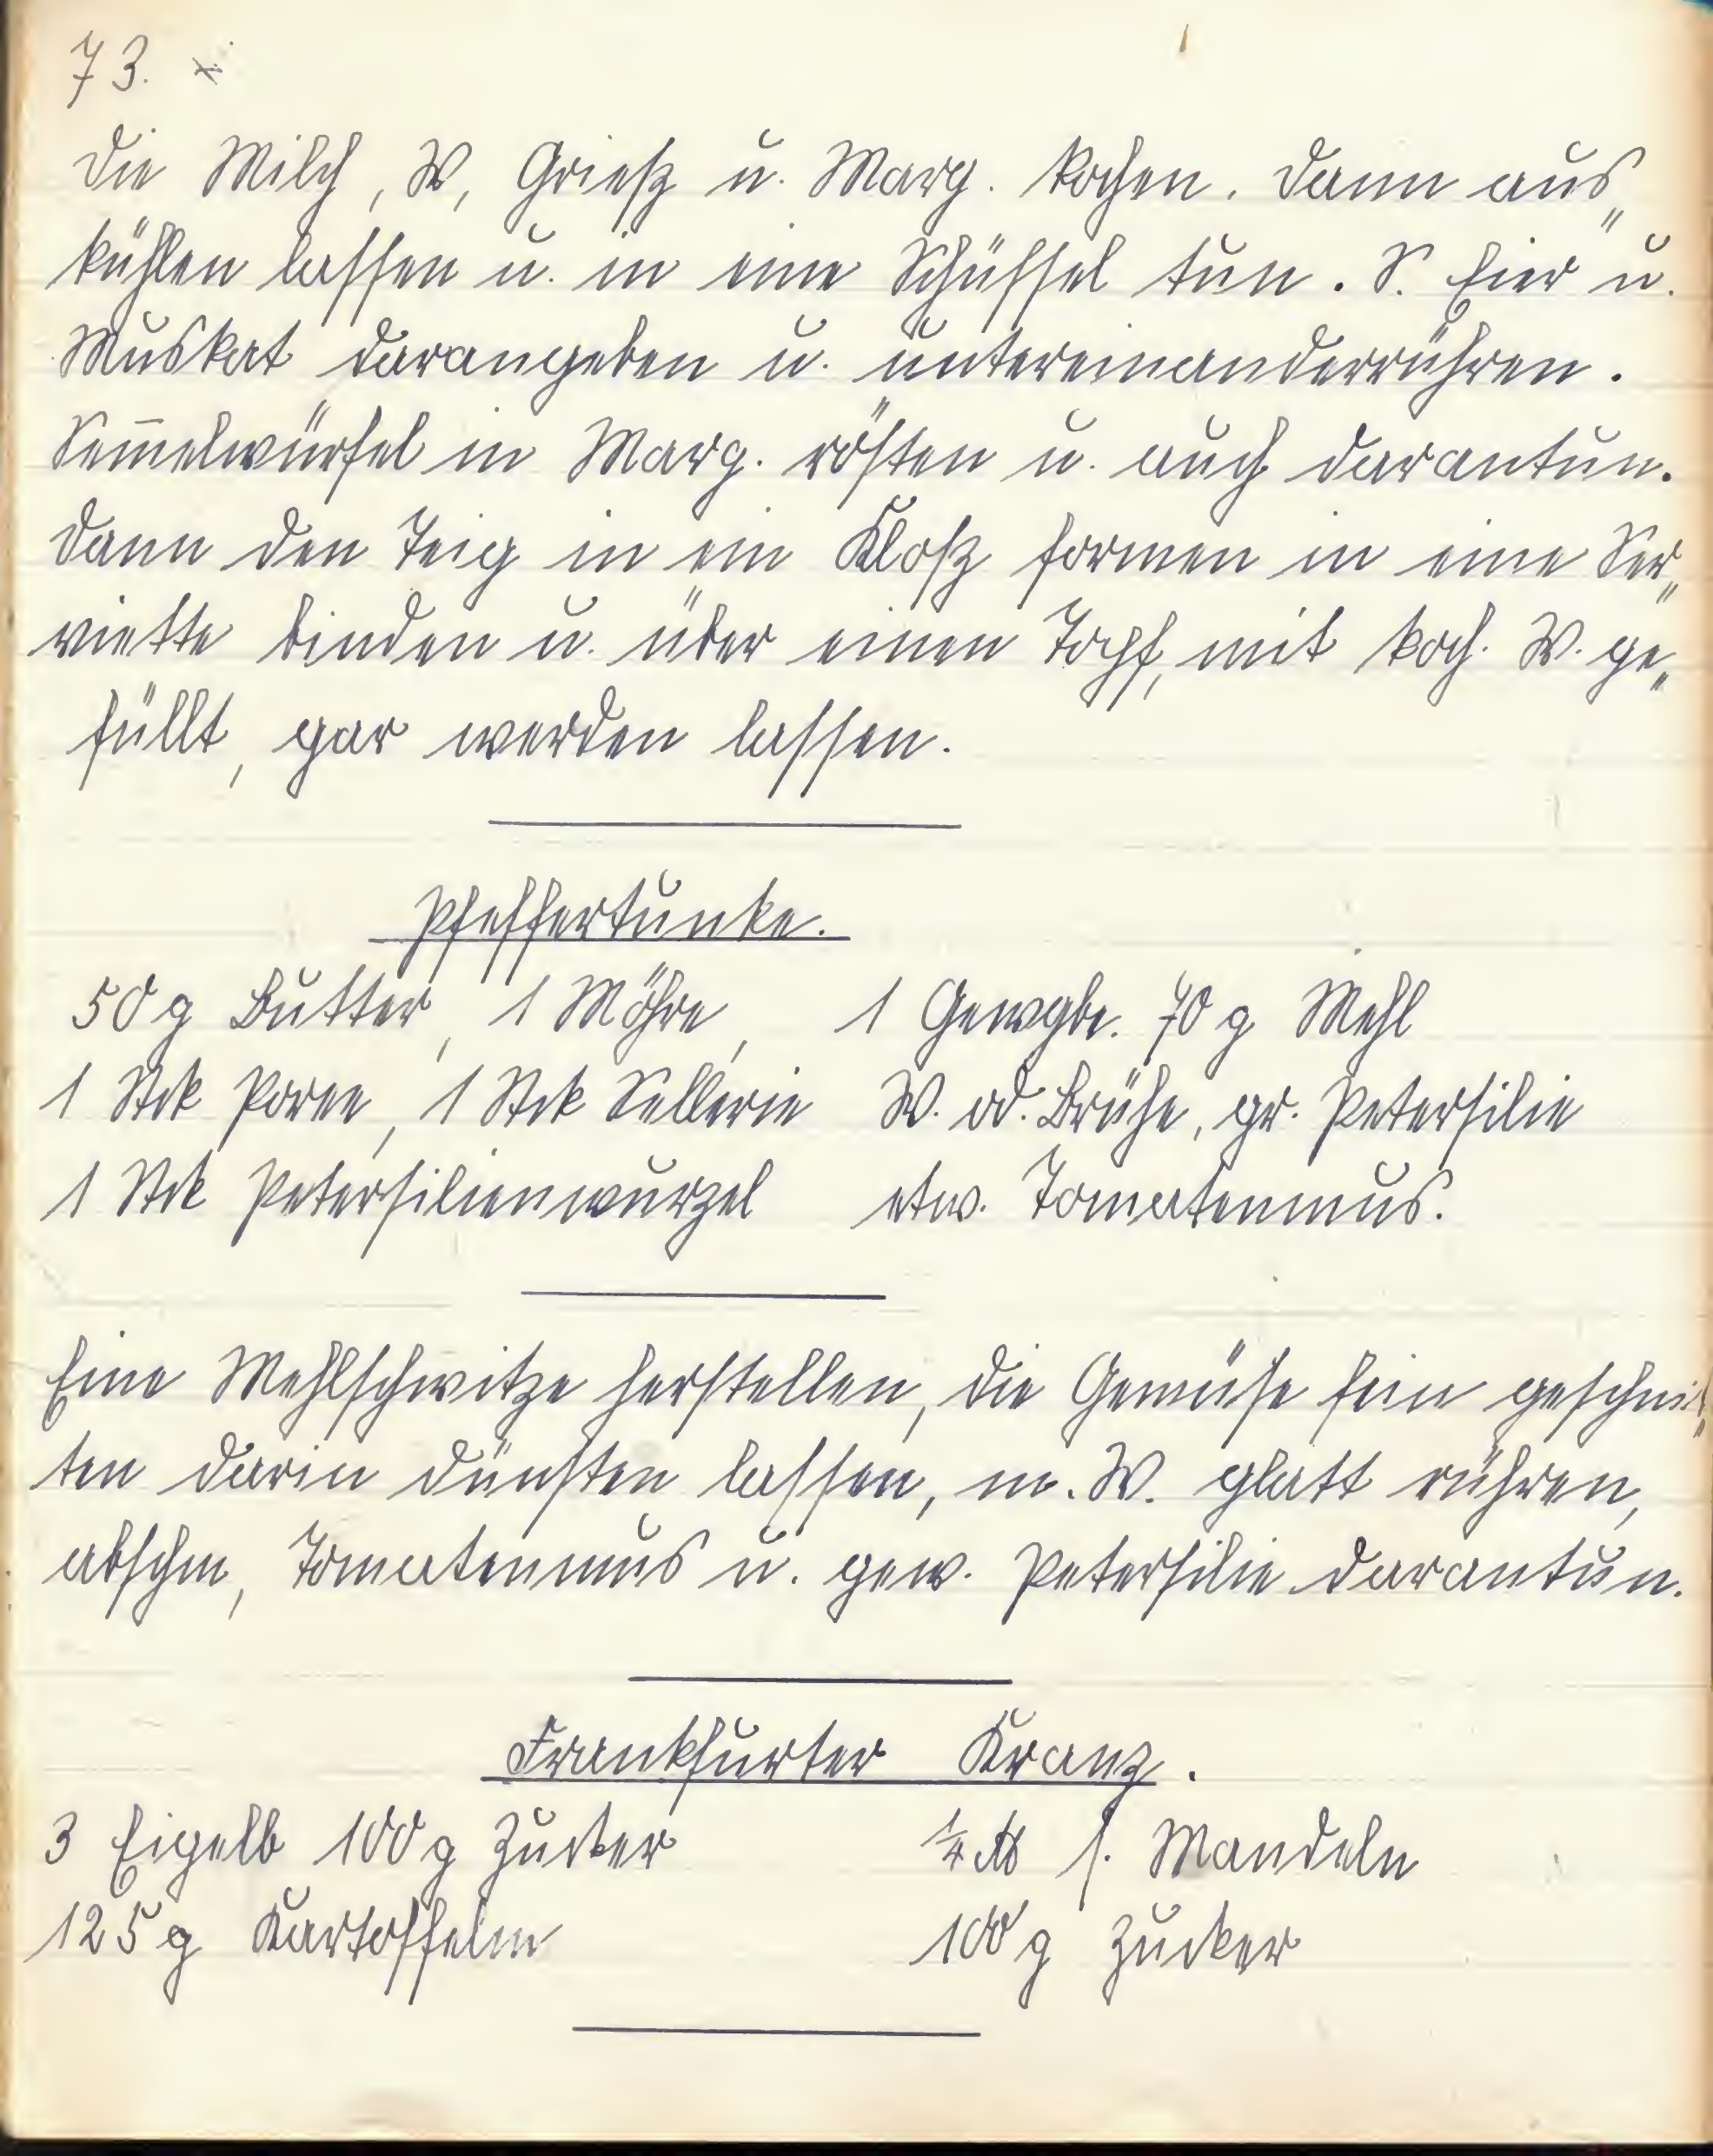 73. x
Die Milch, W, Griesz u. Marg. kochen. Dann aus„
kühlen lassen u. in eine Schüssel tun. S. Eier u.
Muskat darangeben u. untereinanderrühren.
Sem̄elwürfel in Marg. rösten u. auch darantun.
Dann den Teig in ein Klosz formen in eine Ser„
viette binden u. über einen Topf, mit koch. W. ge„
füllt, gar werden lassen.
Pfeffertunke.
50 g Butter, 1 Möhre, 1 Gewgbe. 70 g Mehl
1 Stck Poree, 1 Stck Sellerie W. od. Brühe, gr. Petersilie
1 Stck Petersilienwurzel etw. Tomatenmus.
Eine Mehlschwitze herstellen, die Gemüse fein geschnit„
ten darin dünsten lassen, m. W. glatt rühren,
abschm, Tomatenmus u. gew. Petersilie darantun.
Frankfurter Kranz.
3 Eigelb 100 g Zucker ¼ ℔ s. Mandeln
125 g Kartoffelm 100 g Zucker